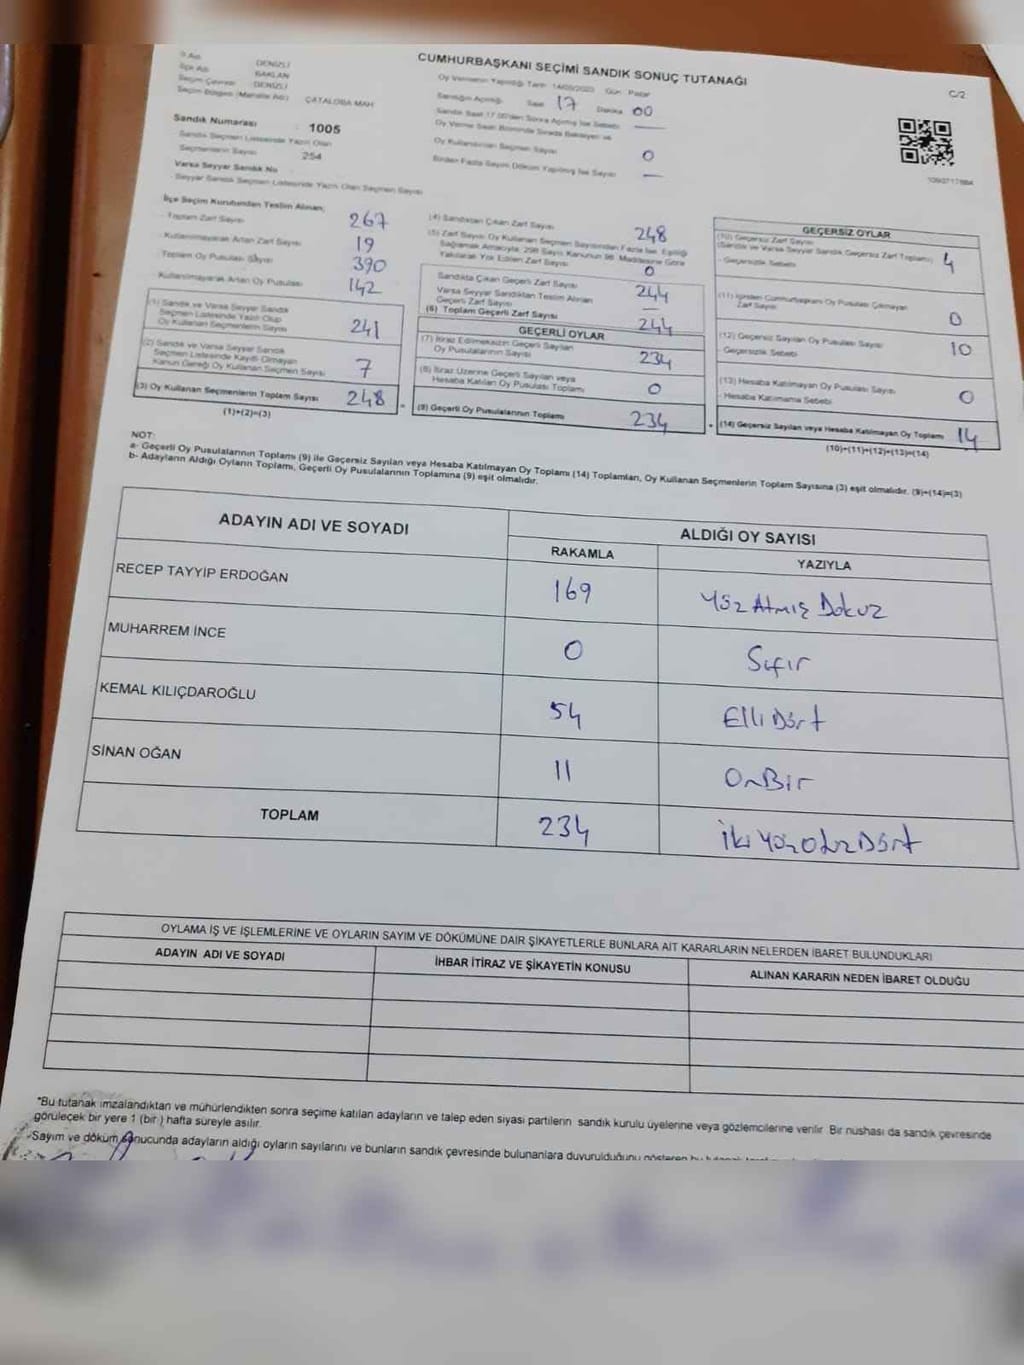 CUMHURBAŞKANI SEÇİMİ SANDIK SONUÇ TUTANAĞI
C/2
İl Adı DENİZLİ
İlçe Adı BAKLAN
Seçim Çevresi DENİZLİ
Seçim Bölgesi (Mahalle Adı) ÇATALOBA MAH
Oy Vermenin Yapıldığı Tarih 14/05/2023 Gün Pazar
Sandığın Açıldığı Saat 17 Dakika 00
Sandık Numarası 1005
Sandık Seçmen Listesinde Yazılı Olan
Seçmenlerin Sayısı 254
Oy Kullandırılan Seçmen Sayısı 0
Birden Fazla Sayım Döküm Yapılmış İse Sayısı —
Varsa Seyyar Sandık No
Seyyar Sandık Seçmen Listesinde Yazılı Olan Seçmen Sayısı
İlçe Seçim Kurulundan Teslim Alınan;
Toplam Zarf Sayısı 267
Kullanılmayarak Artan Zarf Sayısı 19
Toplam Oy Pusulası Sayısı 390
Kullanılmayarak Artan Oy Pusulası 142
(1) Sandık ve Varsa Seyyar Sandık
Seçmen Listesinde Yazılı Olup
Oy Kullanan Seçmenlerin Sayısı 241
(2) Sandık ve Varsa Seyyar Sandık
Seçmen Listesinde Kayıtlı Olmayan
Kanun Gereği Oy Kullanan Seçmen Sayısı 7
(3) Oy Kullanan Seçmenlerin Toplam Sayısı 248
(1)+(2)=(3)
(4) Sandıktan Çıkan Zarf Sayısı 248
(5) Zarf Sayısı Oy Kullanan Seçmen Sayısından Fazla İse, Eşitliği
Sağlamak Amacıyla, 298 Sayılı Kanunun 98. Maddesine Göre
Yakılarak Yok Edilen Zarf Sayısı 0
Sandıkta Çıkan Geçerli Zarf Sayısı 244
Varsa Seyyar Sandıktan Teslim Alınan
Geçerli Zarf Sayısı —
(6) Toplam Geçerli Zarf Sayısı 244
GEÇERLİ OYLAR
(7) İtiraz Edilmeksizin Geçerli Sayılan
Oy Pusulalarının Sayısı 234
(8) İtiraz Üzerine Geçerli Sayılan veya
Hesaba Katılan Oy Pusulası Toplamı 0
(9) Geçerli Oy Pusulalarının Toplamı 234
GEÇERSİZ OYLAR
(10) Geçersiz Zarf Sayısı
(Sandık ve Varsa Seyyar Sandık Geçersiz Zarf Toplamı) 4
- Geçersizlik Sebebi
(11) İçinden Cumhurbaşkanı Oy Pusulası Çıkmayan
Zarf Sayısı 0
(12) Geçersiz Sayılan Oy Pusulası Sayısı 10
- Geçersizlik Sebebi
(13) Hesaba Katılmayan Oy Pusulası Sayısı 0
- Hesaba Katılmama Sebebi
(14) Geçersiz Sayılan veya Hesaba Katılmayan Oy Toplamı 14
(10)+(11)+(12)+(13)=(14)
NOT:
a- Geçerli Oy Pusulalarının Toplamı (9) ile Geçersiz Sayılan veya Hesaba Katılmayan Oy Toplamı (14) Toplamları, Oy Kullanan Seçmenlerin Toplam Sayısına (3) eşit olmalıdır. (9)+(14)=(3)
b- Adayların Aldığı Oyların Toplamı, Geçerli Oy Pusulalarının Toplamına (9) eşit olmalıdır.
ADAYIN ADI VE SOYADI
ALDIĞI OY SAYISI
RAKAMLA YAZIYLA
RECEP TAYYİP ERDOĞAN 169 Yüz Atmış Dokuz
MUHARREM İNCE 0 Sıfır
KEMAL KILIÇDAROĞLU 54 Elli Dört
SİNAN OĞAN 11 OnBir
TOPLAM 234 İki Yüz Otuz Dört
OYLAMA İŞ VE İŞLEMLERİNE VE OYLARIN SAYIM VE DÖKÜMÜNE DAİR ŞİKAYETLERLE BUNLARA AİT KARARLARIN NELERDEN İBARET BULUNDUKLARI
ADAYIN ADI VE SOYADI İHBAR İTİRAZ VE ŞİKAYETİN KONUSU ALINAN KARARIN NEDEN İBARET OLDUĞU
*Bu tutanak imzalandıktan ve mühürlendikten sonra seçime katılan adayların ve talep eden siyasi partilerin sandık kurulu üyelerine veya gözlemcilerine verilir. Bir nüshası da sandık çevresinde
görülecek bir yere 1 (bir) hafta süreyle asılır.
-Sayım ve döküm sonucunda adayların aldığı oyların sayılarını ve bunların sandık çevresinde bulunanlara duyurulduğunu gösteren bu